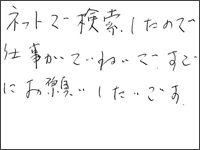 ネットで検索したので
仕事がていねいで、すぐ
にお願いしたいです。